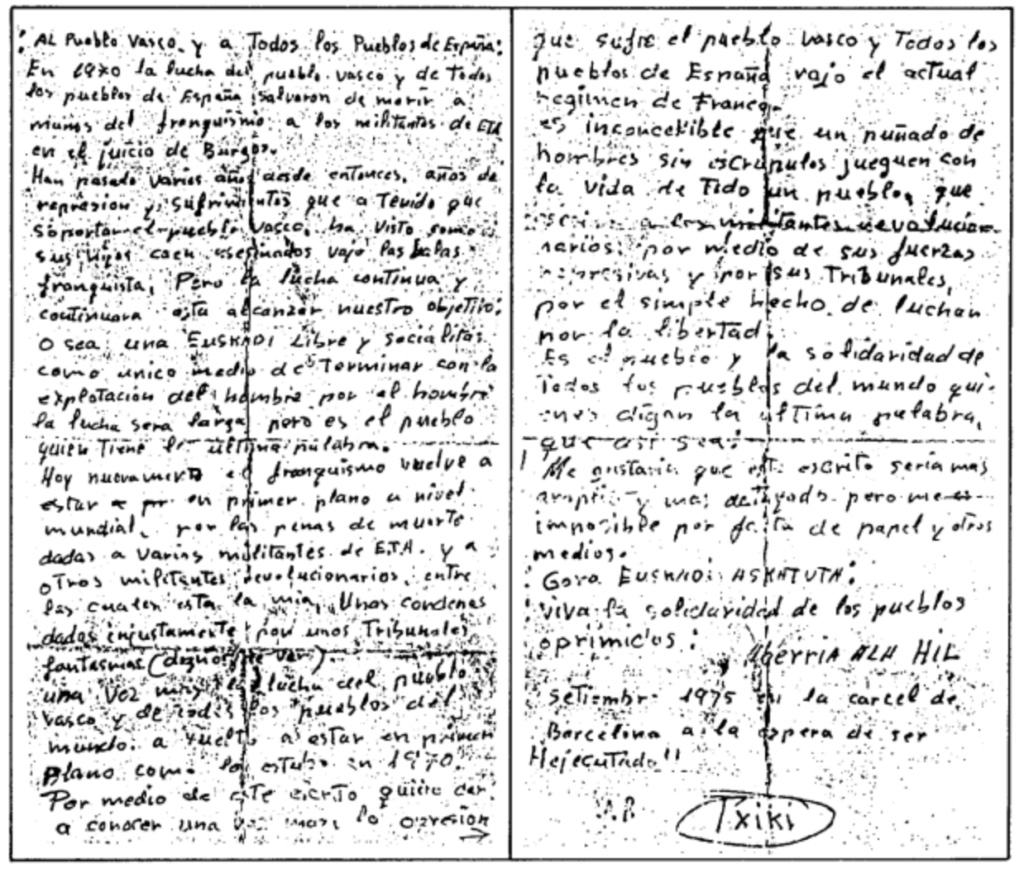 : AL Pueblo Vasco y a Todos los Pueblos de España:
En 1970 la lucha del pueblo vasco y de Todos
los pueblos de España salvaron de morir a
manos del franquismo a los militantes de ETA
en el juicio de Burgos.
Han pasado varios años desde entonces, años de
represion y sufrimientos que a Tenido que
soportar el pueblo vasco, ha visto como
sus hijos caen asesinados vajo las balas
franquista, Pero la lucha continua y
continuara asta alcanzar nuestro objetivo:
O sea una EUSKADI Libre y socialitas
como unico medio de Terminar con la
explotación del hombre por el hombre
la lucha sera larga pero es el pueblo
quien Tiene la ultima palabra.
Hoy nuevamente el franquismo vuelve a
estar en primer plano a nivel
mundial, por las penas de muerte
dadas a varios militantes de E.T.A. y a
otros militantes revolucionarios, entre
las cuales esta la mia, Unas condenas
dadas enjustamente por unos Tribunales
fantasmas (dignos de ver).
una vez mas la lucha del pueblo
vasco y de todos los pueblos del
mundo a vuelto a estar en primer
plano como lo estubo en 1970.
Por medio de este escrito quiero dar
a conocer una vez mas, la opresión
que sufre el pueblo vasco y Todos los
pueblos de España vajo el actual
regimen de Franco.
es inconcebible que un puñado de
hombres sin escrupulos jueguen con
la vida de Todo un pueblo, que
a los militantes revolucio-
narios, por medio de sus fuerzas
represivas y por sus Tribunales,
por el simple hecho de luchar
por la libertad.
Es el pueblo y la solidaridad de
Todos los pueblos del mundo qui-
enes digan la ultima palabra,
que asi sea:
Me gustaria que este escrito seria mas
amplio y mas detallado pero me es
imposible por falta de papel y otros
medios.
Gora EUSKADI ASKATUTA:
viva la solidaridad de los pueblos
oprimidos:
Aberria ALA HIL
Setiembre 1975 en la carcel de
Barcelona a la espera de ser
Hejecutado!!
Txiki